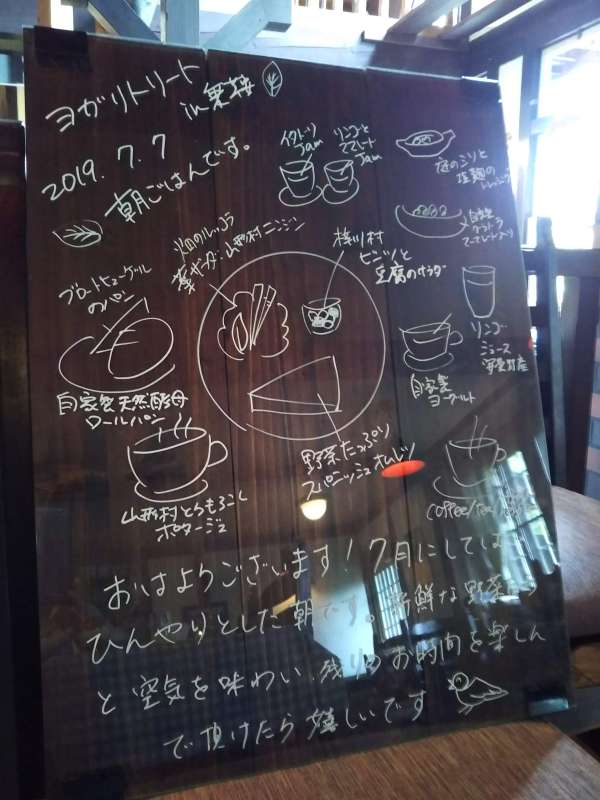 ヨガリトリート
in 乗鞍
2019.7.7
朝ごはんです。
イタドリ
Jam
リンゴと
Jam
庭のミツと
塩麹の
ドレッシング
自家製
火田のルッコラ
山形村ニンジン
梓川村
豆腐のサラダ
ブロートヒューゲル
のパン
リンゴ
ジュース
安曇野産
自家製
ヨーグルト
自家製天然酵母
ロールパン
野菜たっぷり
スパニッシュオムレツ
山形村とうもろこし
ポタージュ
coffee/tea
おはようございます！7月にしては
ひんやりとした朝です。新鮮な野菜たち
と空気を味わい、残りのお時間を楽しん
で頂けたら嬉しいです